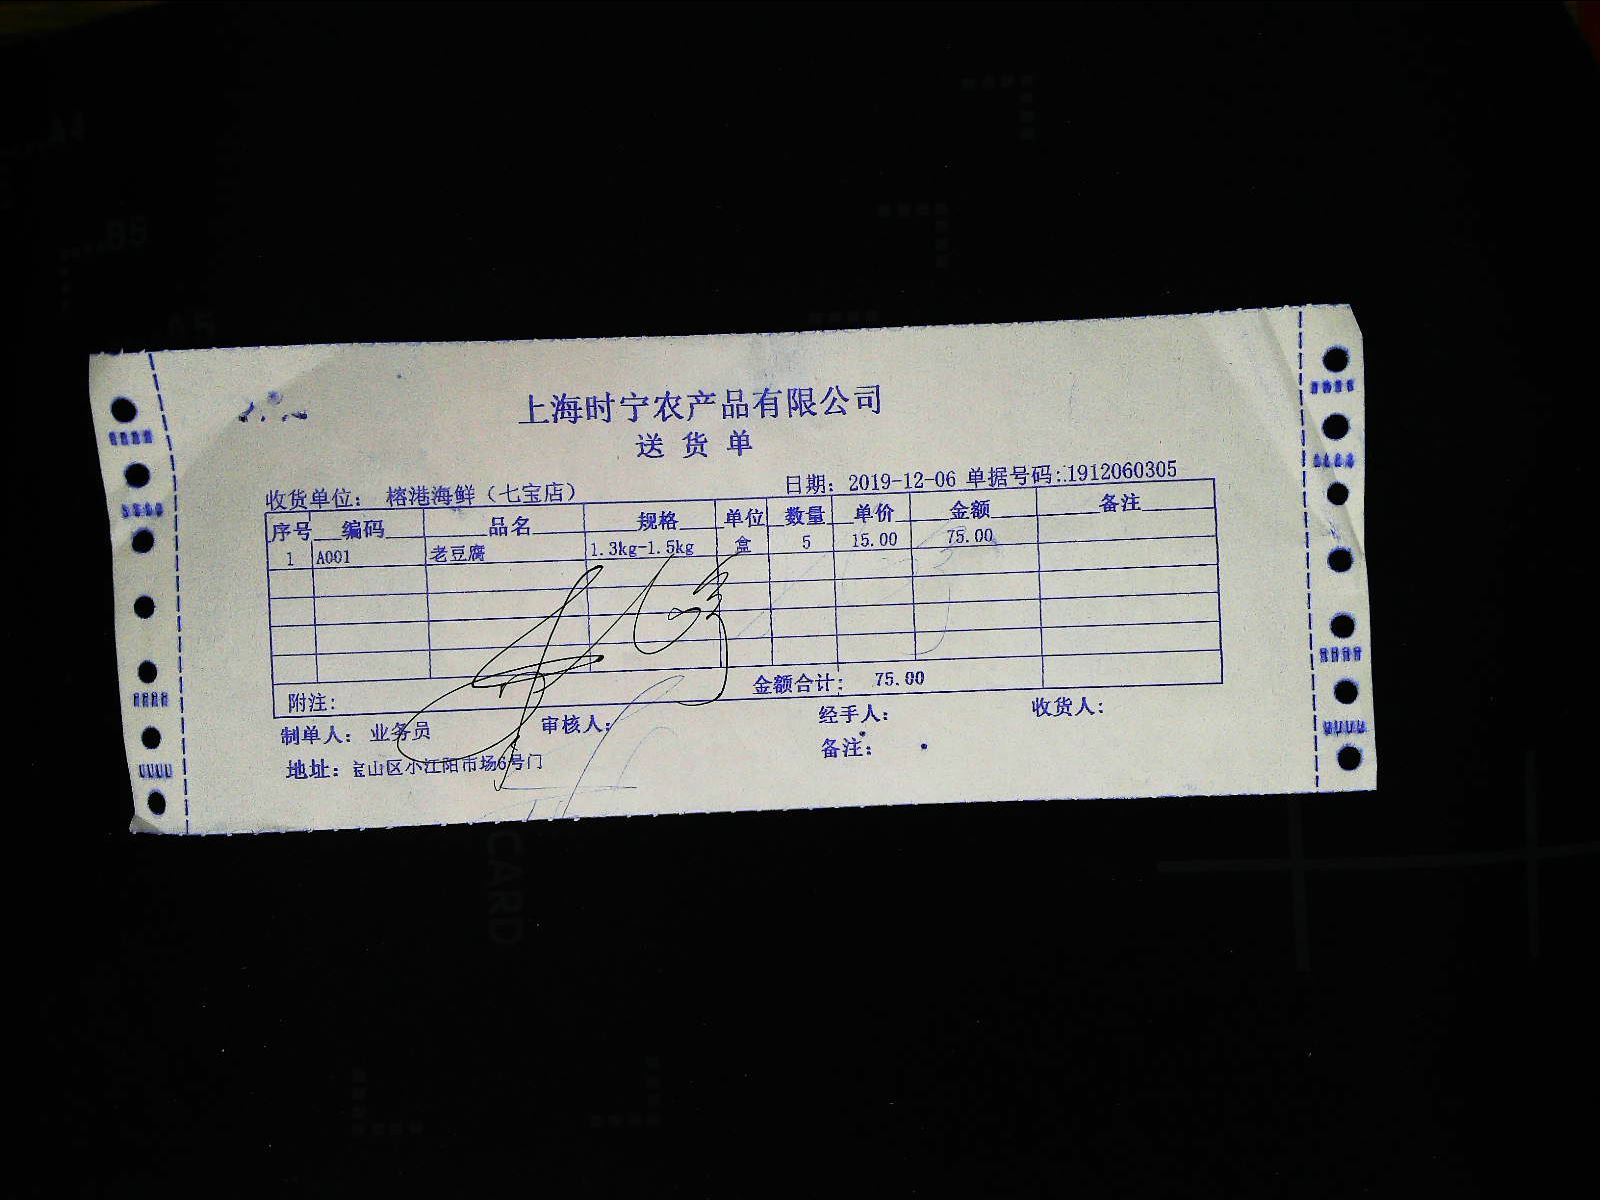 上海时宁农产品有限公司
送货单
收货单位： 榕港海鲜（七宝店） 日期：2019-12-06 单据号码:1912060305
序号 编码 品名 规格 单位 数量 单价 金额 备注
1 A001 老豆腐 1.3kg-1.5kg 盒 5 15.00 75.00
附注： 金额合计： 75.00
制单人： 业务员 审核人： 经手人： 收货人：
地址：宝山区小江阳市场6号门 备注：
A4
B5
A5
CARD